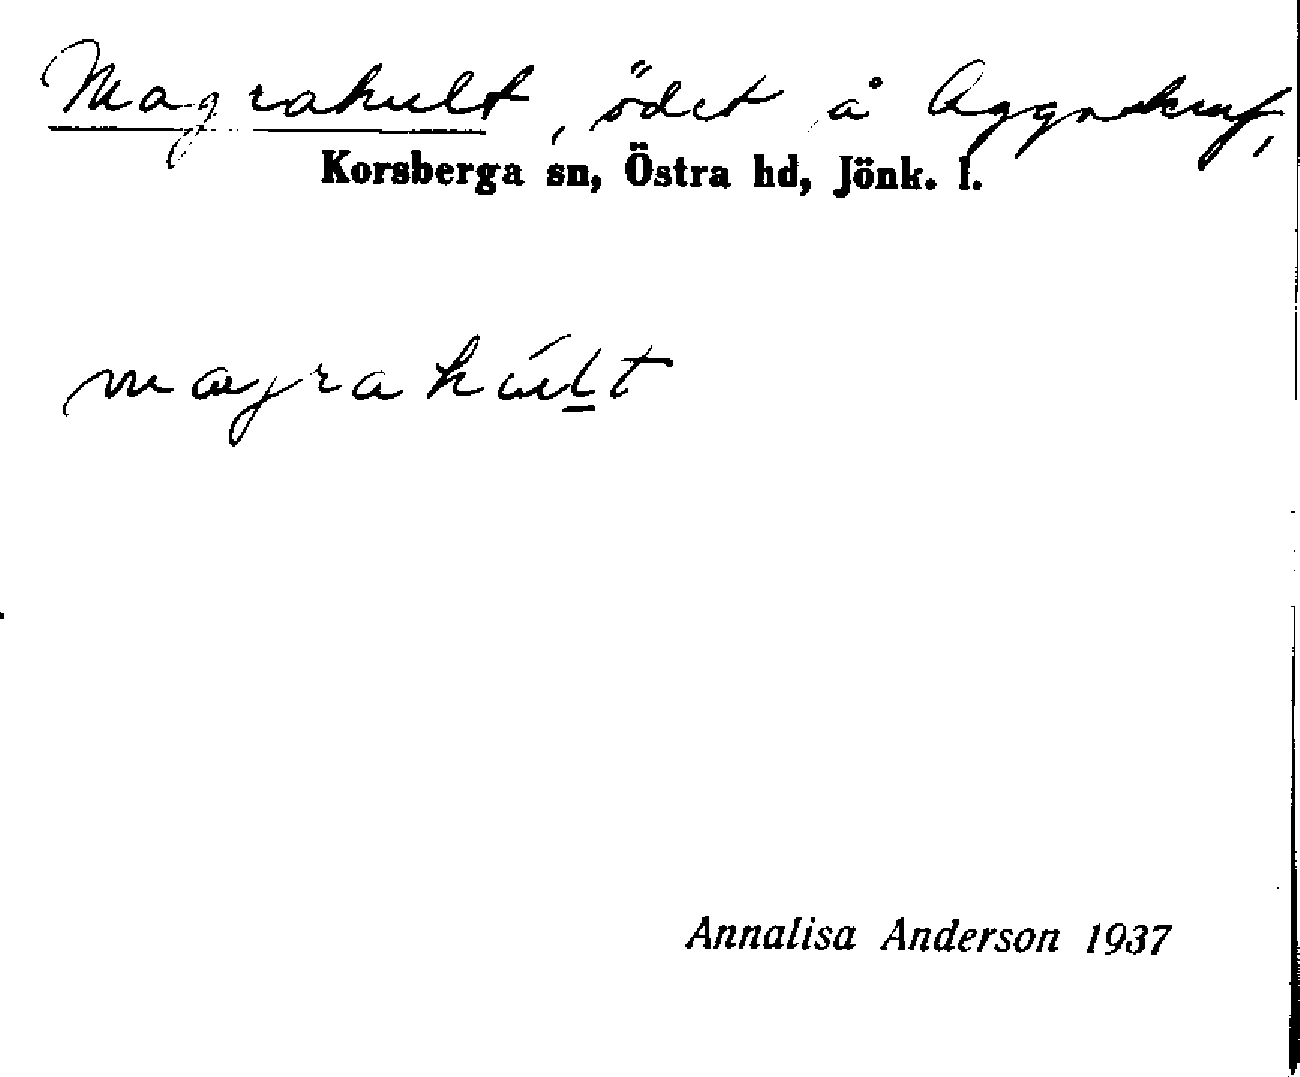 Magrakult, ödet å Aggnekruf,
Korsberga sn, Östra hd, Jönk. l.
magrakúlt
Annalisa Anderson 1937